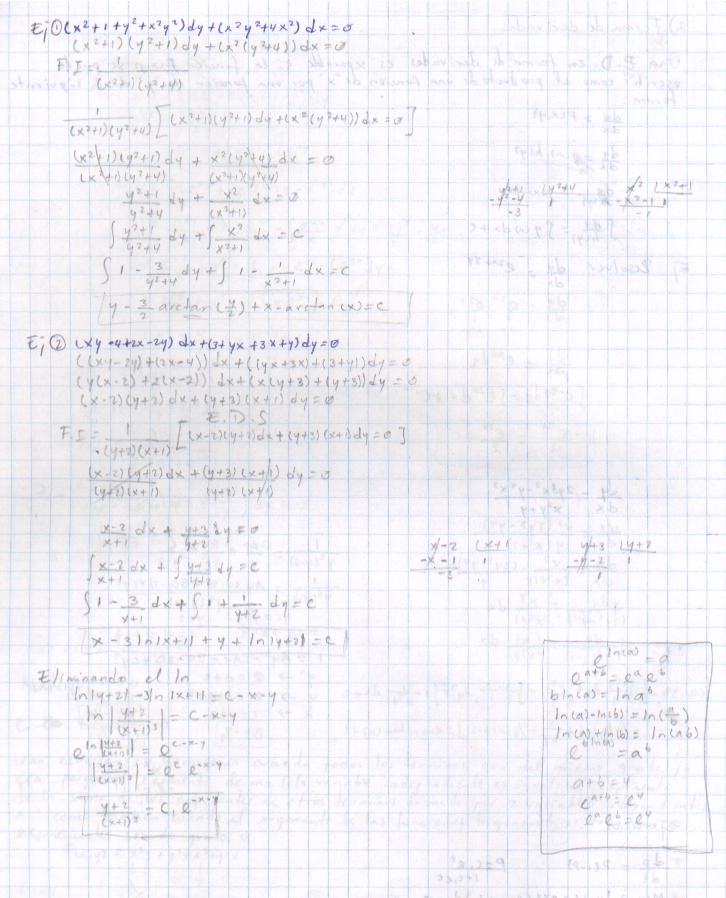 Ej ① (x²+1+y²+x²y²)dy+(x²y²+4x²)dx=0
(x²+1)(y²+1)dy+(x²(y²+4))dx=0
F.I = 1/((x²+1)(y²+4))
1/((x²+1)(y²+4)) [(x²+1)(y²+1)dy+(x²(y²+4))dx=0]
(x²+1)(y²+1)/((x²+1)(y²+4)) dy + x²(y²+4)/((x²+1)(y²+4)) dx = 0
(y²+1)/(y²+4) dy + x²/(x²+1) dx = 0
∫ (y²+1)/(y²+4) dy + ∫ x²/(x²+1) dx = c
∫ 1 - 3/(y²+4) dy + ∫ 1 - 1/(x²+1) dx = c
y - 3/2 arctan (y/2) + x - arctan(x) = c
y²+1 | y²+4
-y²-4 1
-3
x² | x²+1
-x²-1 1
-1
Ej ② (xy-4+2x-2y) dx+(3+yx+3x+y)dy=0
((xy-2y)+(2x-4)) dx+((yx+3x)+(3+y))dy=0
(y(x-2)+2(x-2)) dx+(x(y+3)+(y+3))dy=0
(x-2)(y+2)dx+(y+3)(x+1)dy=0
E.D.S
F.I = 1/((y+2)(x+1)) [(x-2)(y+2)dx+(y+3)(x+1)dy=0]
(x-2)(y+2)/((y+2)(x+1)) dx + (y+3)(x+1)/((y+2)(x+1)) dy=0
(x-2)/(x+1) dx + (y+3)/(y+2) dy=0
∫ (x-2)/(x+1) dx + ∫ (y+3)/(y+2) dy=c
∫ 1 - 3/(x+1) dx + ∫ 1 + 1/(y+2) dy=c
x-3ln|x+1|+y+ln|y+2|=c
x-2 | x+1
-x-1 1
-3
y+3 | y+2
-y-2 1
1
Eliminando el ln
ln|y+2|-3ln|x+1|=c-x-y
ln |(y+2)/(x+1)³| = c-x-y
e^(ln|(y+2)/(x+1)³|) = e^(c-x-y)
|(y+2)/(x+1)³| = e^c e^(-x-y)
(y+2)/(x+1)³ = C₁ e^(-x-y)
e^(ln(a)) = a
e^(a+b) = e^a e^b
b ln(a) = ln a^b
ln(a)-ln(b) = ln(a/b)
ln(a)+ln(b) = ln(ab)
e^(b ln(a)) = a^b
a+b=4
e^(a+b)=e⁴
e^a e^b=e⁴